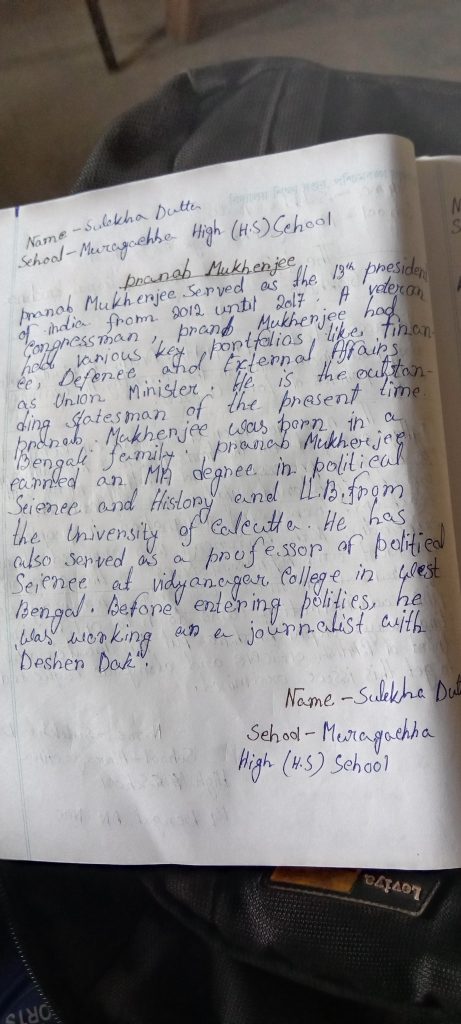 Name - Sulekha Dutta
School - Muragachha High (H.S) School
Pranab Mukhenjee
Pranab Mukhenjee served as the 13th president
of india from 2012 until 2017. A veteran
Congressman, pranab Mukhenjee had
held various key pontfolias like, Finan-
ce, Defence and External Affairs
as Union Minister. He is the outstan-
ding statesman of the present time.
pranab Mukhenjee was born in a
Bengali family. pranab Mukherjee
earned an MA degree in political
Science and History and LL.B. from
the University of Calcutta. He has
also served as a professor of political
Science at vidyanagar College in West
Bengal. Before entering polities, he
was working an a journalist with
"Deshen Dak".
Name - Sulekha Dutt
School - Muragachha
High (H.S) School
Loviya
ORTS